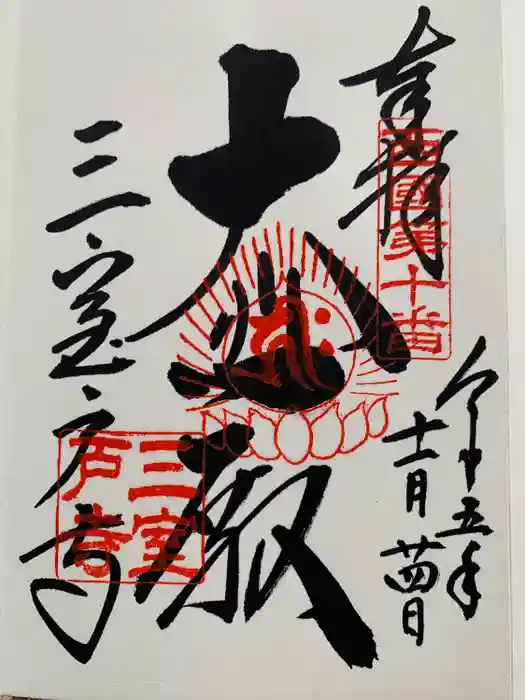 奉拝
西國第十番
令和五年
十一月廿四日
大悲殿
三室戸寺
三室戸寺